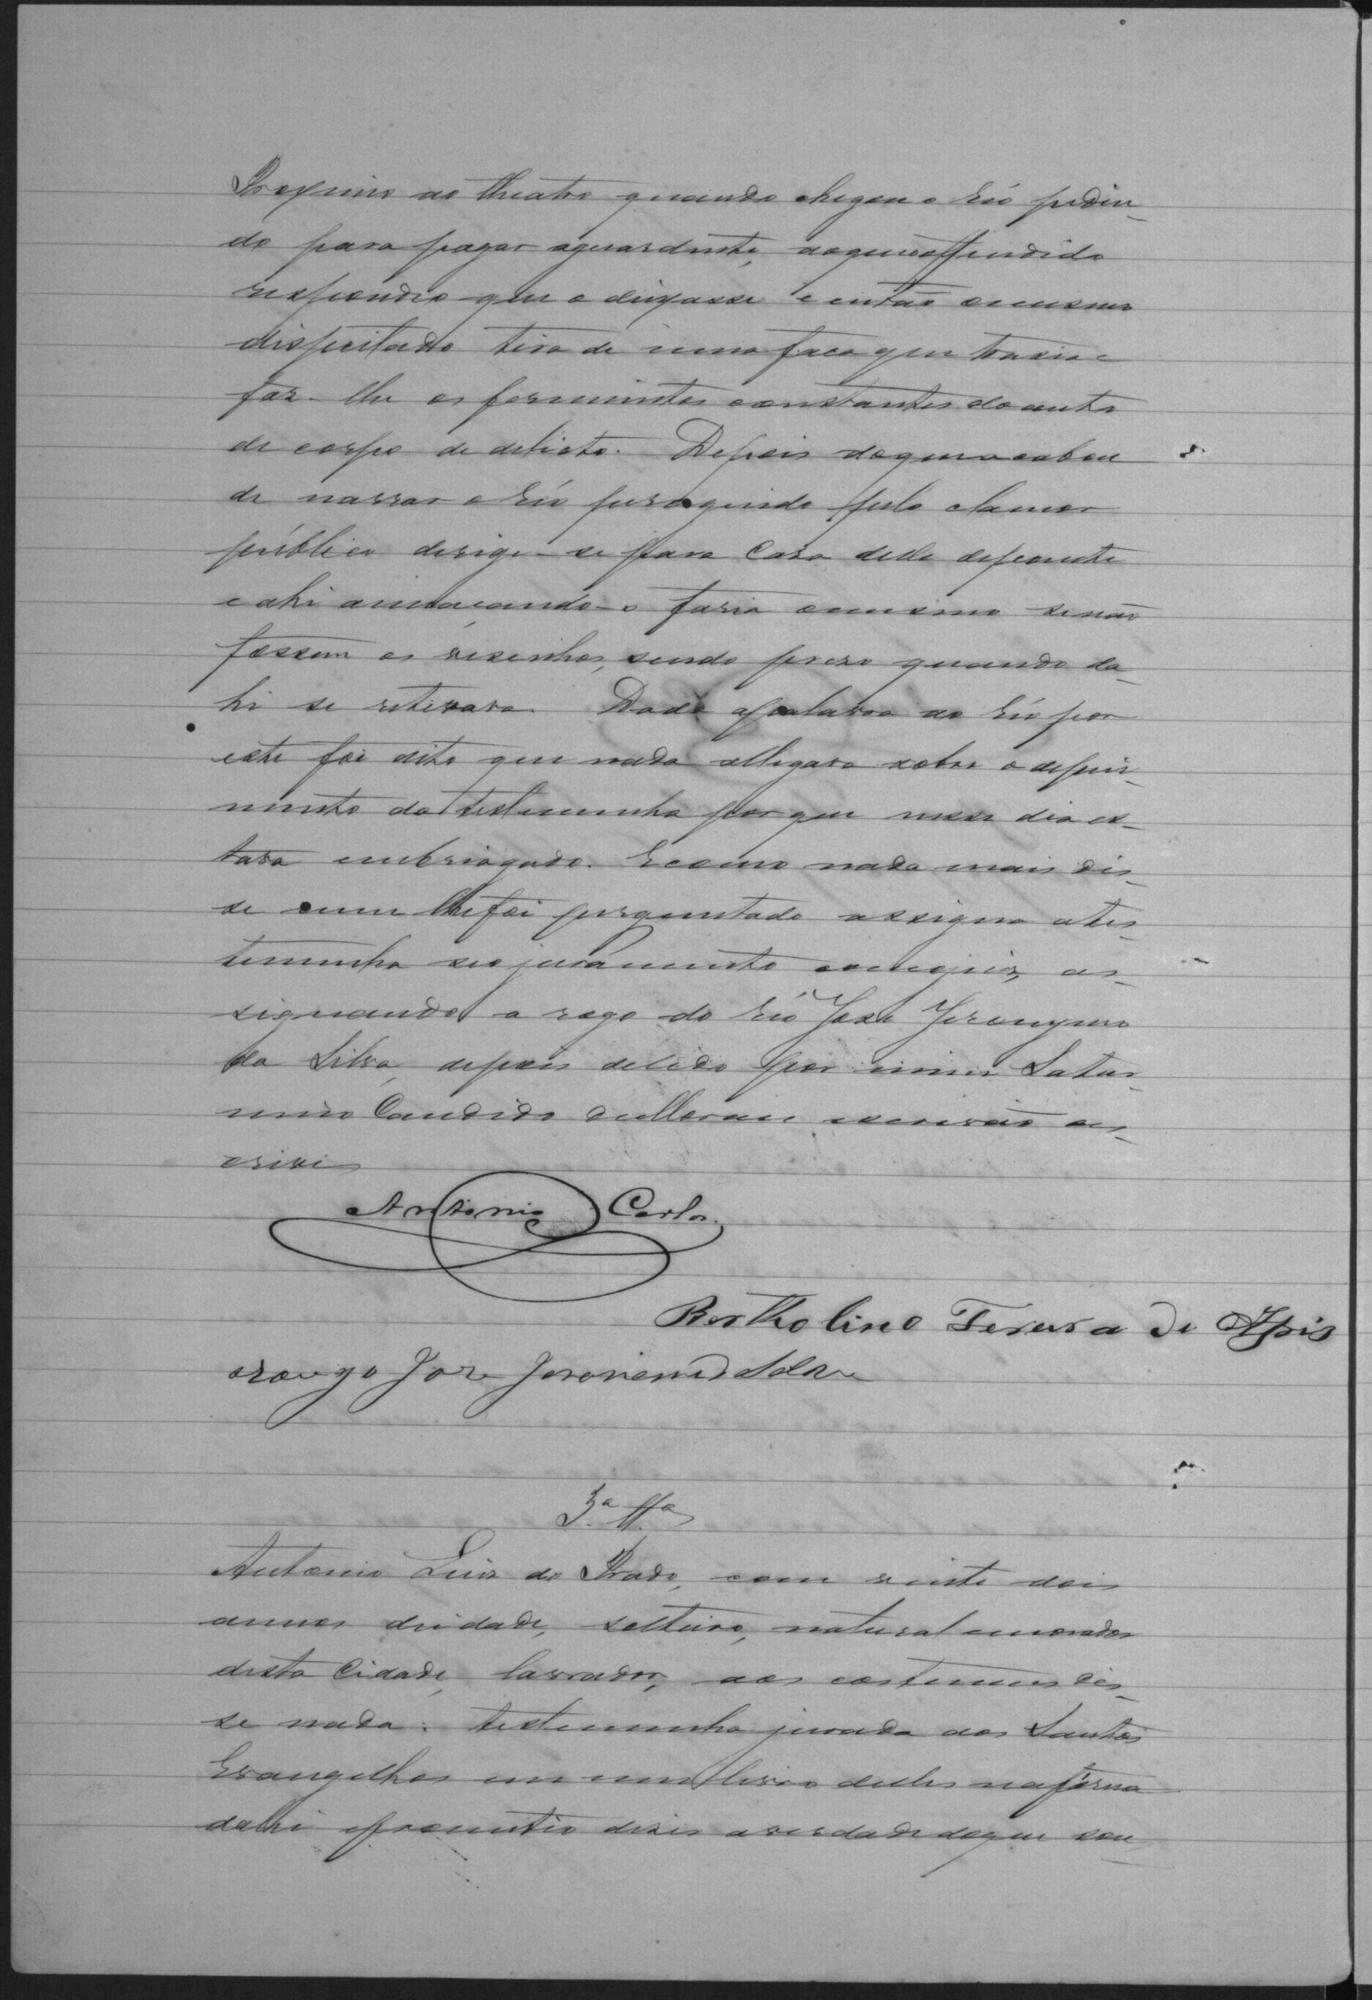 Proximo ao theatro quando chegou o réo pedin-
do para pagar aguardente, ao que o offendido
respondeo que o deixasse e então o mesmo
dispeitado tira de uma faca que trazia e
faz-lhe os ferimentos constantes do auto
de corpo de delicto. Depois do que acabou
de narrar o réo perseguido pelo clamor
público dirige-se para casa delle depoente
e ahi ameaçando-o faria o mesmo se não
fossem os visinhos, sendo preso quando da-
hi se retirava. Dada a palavra ao réo por
este foi dito que nada allegava sobre o depoi-
mento da testemunha porque nesse dia es-
tava embriagado. E como nada mais dis-
se e nem lhe foi perguntado assigna a tes-
temunha seo juramento com o juiz, as-
signando a rogo do réo José Jeronymo
da Silva, depois de lido por mim Satur-
nino Candido escrivão es-
crivi
Antonio Carlos
Bertholino Fereira de
arougo Joze Jeronimo da Silva
3.ª Ttª
Antonio Luis do Prado, com vinte dois
annos de idade, solteiro, natural e morador
desta Cidade, lavrador, aos costumes dis-
se nada: testemunha jurada aos Santos
Evangelhos em um livro delles na forma
da lei prometeo dizer a verdade do que sou-